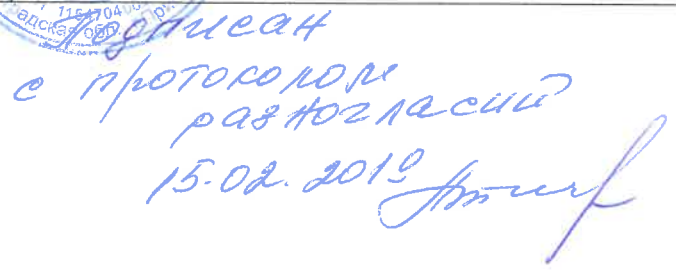 адская обл.
Подписан
с протоколом
разногласий
15.02.2019